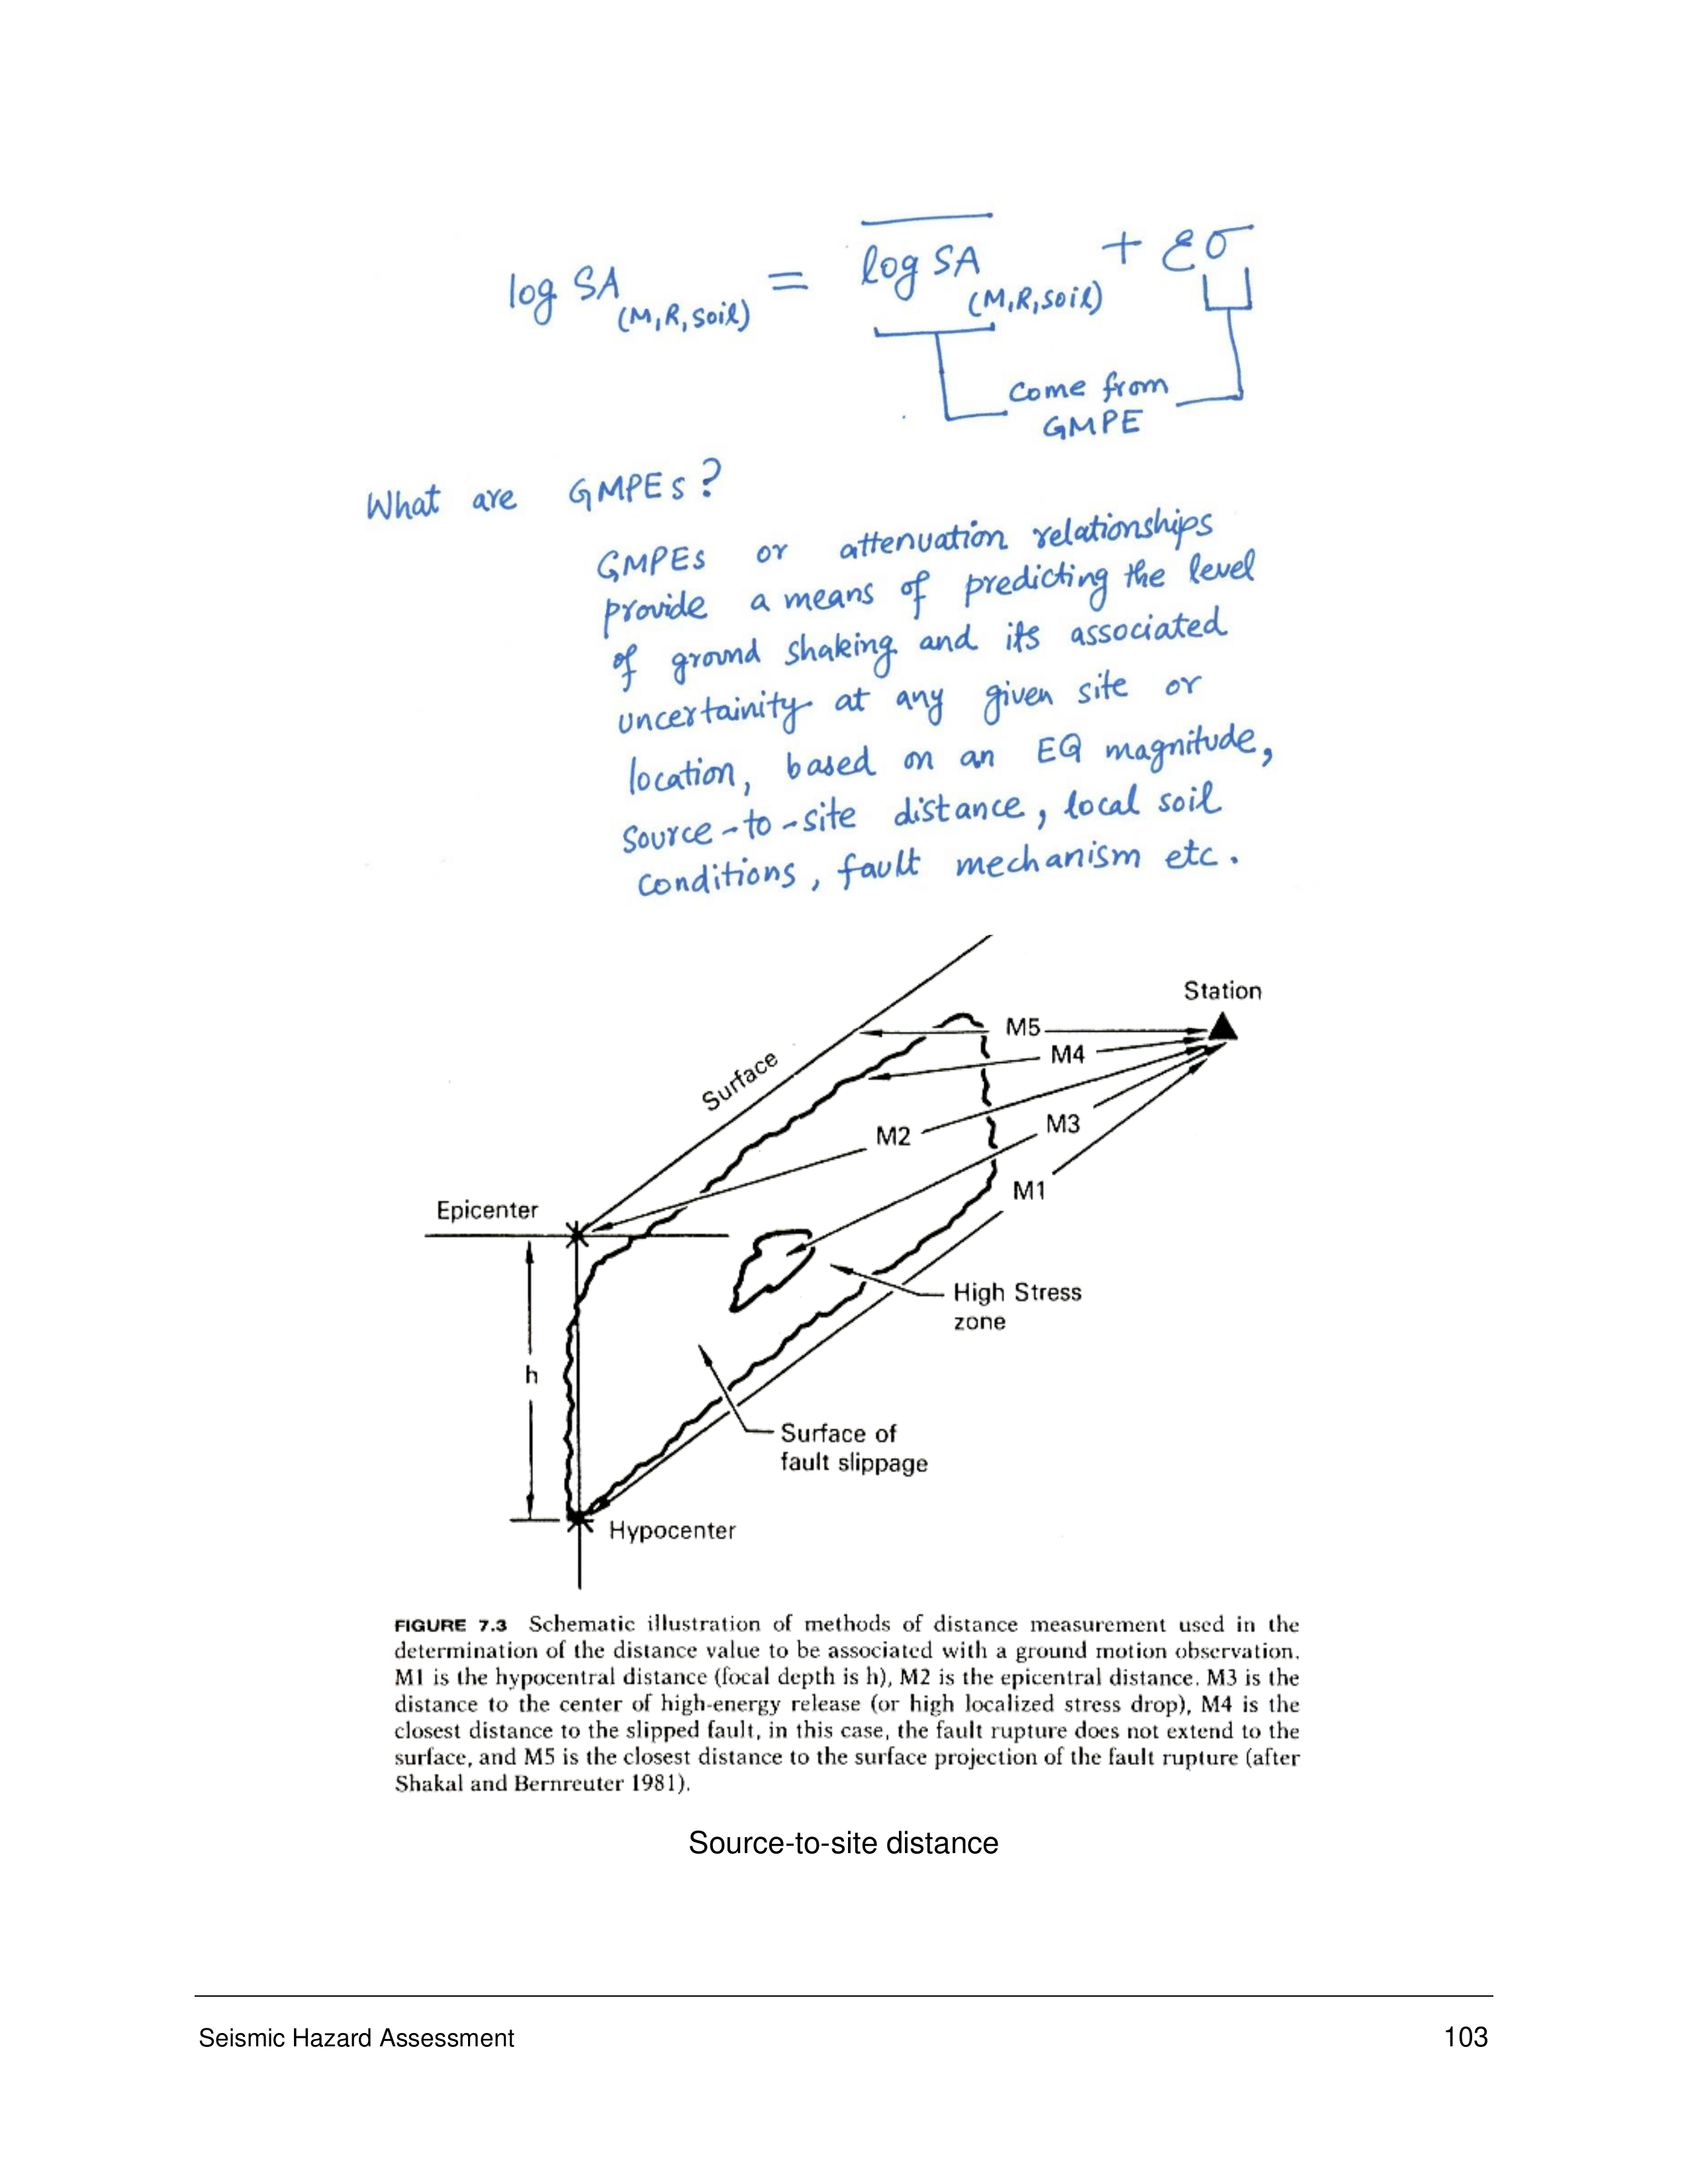 log SA(M,R,soil) = log SA(M,R,soil) + εσ
Come from
GMPE
What are GMPEs?
GMPEs or attenuation relationships
provide a means of predicting the level
of ground shaking and its associated
uncertainity at any given site or
location, based on an EQ magnitude,
source-to-site distance, local soil
conditions, fault mechanism etc.
Station
M5
M4
Surface
M2
M3
M1
Epicenter
High Stress
zone
h
Surface of
fault slippage
Hypocenter
FIGURE 7.3 Schematic illustration of methods of distance measurement used in the
determination of the distance value to be associated with a ground motion observation.
M1 is the hypocentral distance (focal depth is h), M2 is the epicentral distance. M3 is the
distance to the center of high-energy release (or high localized stress drop), M4 is the
closest distance to the slipped fault, in this case, the fault rupture does not extend to the
surface, and M5 is the closest distance to the surface projection of the fault rupture (after
Shakal and Bernreuter 1981).
Source-to-site distance
Seismic Hazard Assessment 103